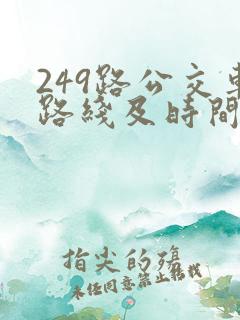 249路公交車
路綫及時間
指尖的殤
未任同意禁止转载